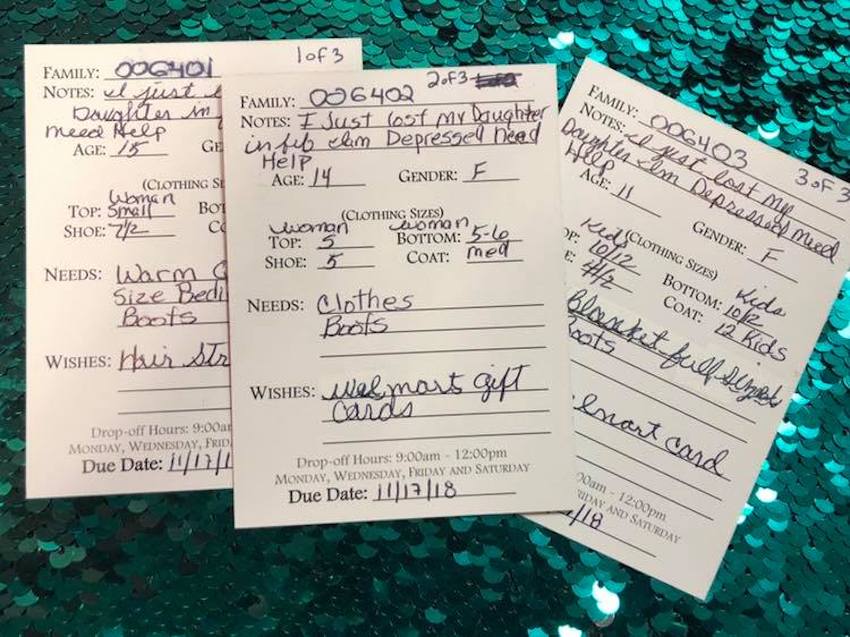 1 of 3
FAMILY: 006401
NOTES: I just l
Daughter in f
need Help
AGE: 15 GE
(CLOTHING SI
Woman
TOP: Small BOT
SHOE: 7½ CO
NEEDS: Warm C
Size Bedi
Boots
WISHES: Hair Str
Drop-off Hours: 9:00a
MONDAY, WEDNESDAY, FRID
Due Date: 11/17/1
2 of 3
FAMILY: 006402
NOTES: I Just lost my Daughter
in feb Im Depressed need
Help
AGE: 14 GENDER: F
(CLOTHING SIZES)
woman woman
TOP: 5 BOTTOM: 5-6
SHOE: 5 COAT: med
NEEDS: Clothes
Boots
WISHES: Walmart gift
Cards
Drop-off Hours: 9:00am - 12:00pm
MONDAY, WEDNESDAY, FRIDAY AND SATURDAY
Due Date: 11/17/18
3 of 3
FAMILY: 006403
NOTES: I just lost my
Daughter Im Depressed need
Help
AGE: 11
GENDER: F
(CLOTHING SIZES)
Kids Kids
OP: 10/12 BOTTOM: 10/12
E: 4½ COAT: 12 Kids
Blanket full size
oots
lmart card
00am - 12:00pm
RIDAY AND SATURDAY
/18